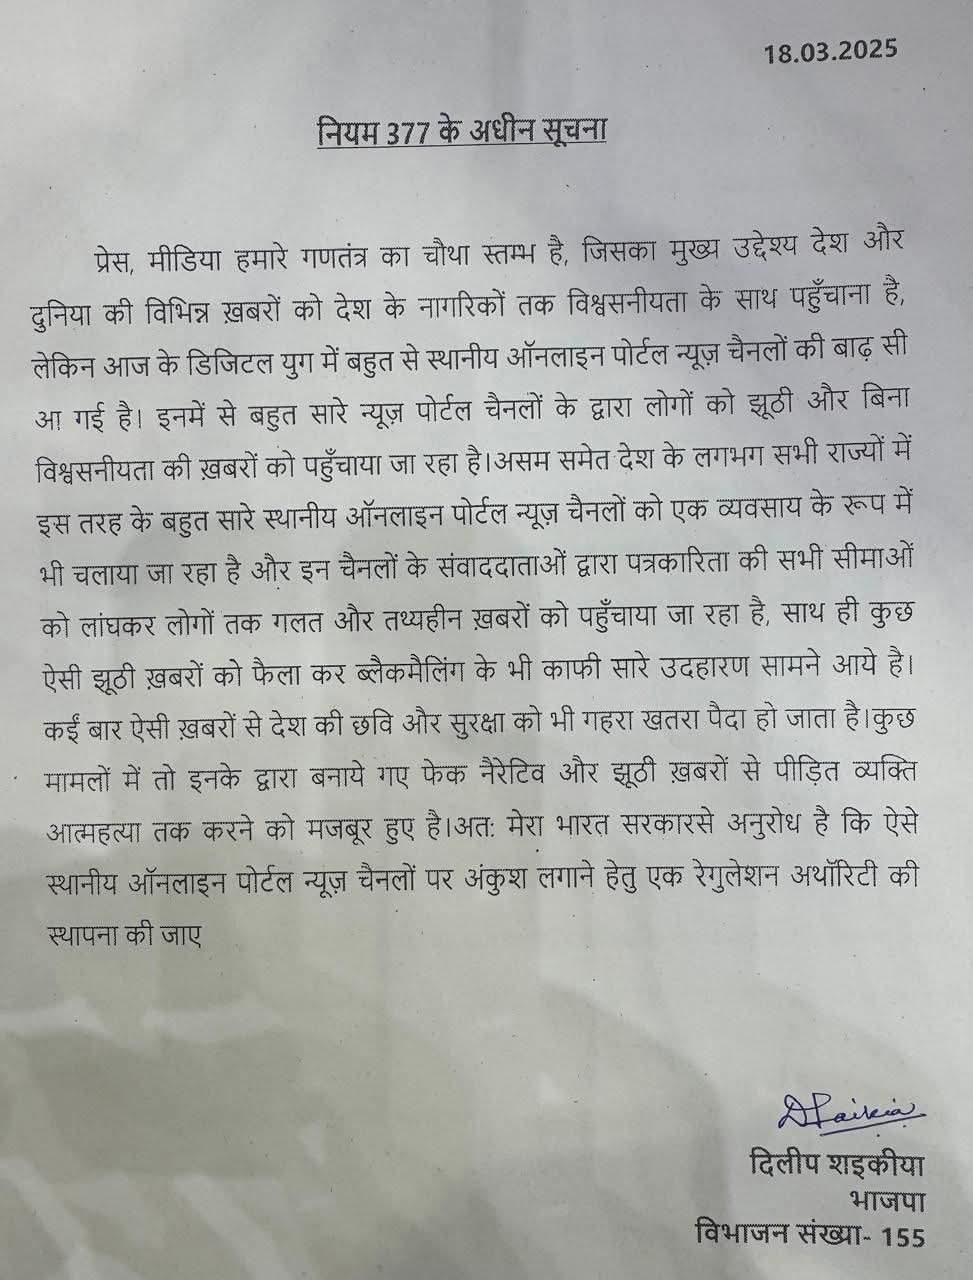 18.03.2025
नियम 377 के अधीन सूचना
प्रेस, मीडिया हमारे गणतंत्र का चौथा स्तम्भ है, जिसका मुख्य उद्देश्य देश और
दुनिया की विभिन्न ख़बरों को देश के नागरिकों तक विश्वसनीयता के साथ पहुँचाना है,
लेकिन आज के डिजिटल युग में बहुत से स्थानीय ऑनलाइन पोर्टल न्यूज़ चैनलों की बाढ़ सी
आ गई है। इनमें से बहुत सारे न्यूज़ पोर्टल चैनलों के द्वारा लोगों को झूठी और बिना
विश्वसनीयता की ख़बरों को पहुँचाया जा रहा है।असम समेत देश के लगभग सभी राज्यों में
इस तरह के बहुत सारे स्थानीय ऑनलाइन पोर्टल न्यूज़ चैनलों को एक व्यवसाय के रूप में
भी चलाया जा रहा है और इन चैनलों के संवाददाताओं द्वारा पत्रकारिता की सभी सीमाओं
को लांघकर लोगों तक गलत और तथ्यहीन ख़बरों को पहुँचाया जा रहा है, साथ ही कुछ
ऐसी झूठी ख़बरों को फैला कर ब्लैकमैलिंग के भी काफी सारे उदहारण सामने आये है।
कईं बार ऐसी ख़बरों से देश की छवि और सुरक्षा को भी गहरा खतरा पैदा हो जाता है।कुछ
मामलों में तो इनके द्वारा बनाये गए फेक नैरेटिव और झूठी ख़बरों से पीड़ित व्यक्ति
आत्महत्या तक करने को मजबूर हुए है।अत: मेरा भारत सरकारसे अनुरोध है कि ऐसे
स्थानीय ऑनलाइन पोर्टल न्यूज़ चैनलों पर अंकुश लगाने हेतु एक रेगुलेशन अथॉरिटी की
स्थापना की जाए
DSaikia
दिलीप शइकीया
भाजपा
विभाजन संख्या- 155